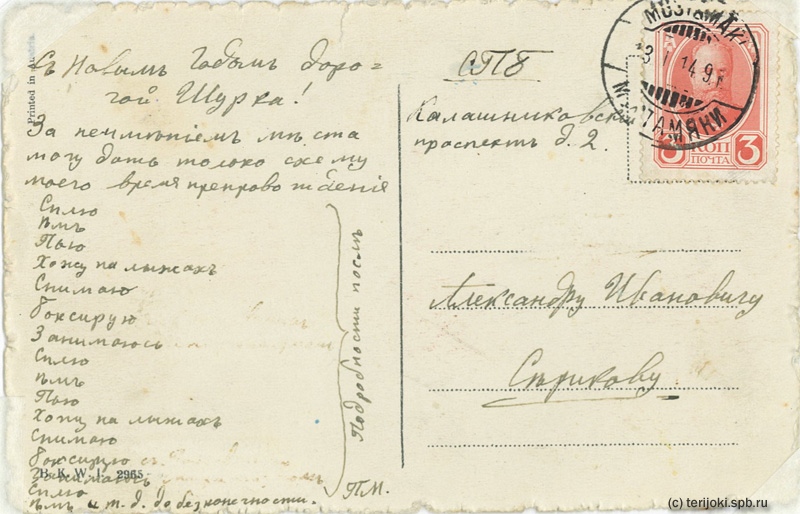 Съ Новымъ Годомъ доро-
гой Шурка!
За неимѣніемъ мѣста
могу дать только схему
моего время препровожденія
Сплю
ѣмъ
Пою
Хожу на лыжахъ
Снимаю
боксирую
Занимаюсь
Сплю
ѣмъ
Пою
Хожу на лыжахъ
Снимаю
боксирую
Сплю
ѣмъ и т.д. до безконечности.
Подробности послѣ
П.М.
Printed in
B. K. W. I. 2965
СПБ
Калашниковск
проспектъ д. 2.
Александру Ивановичу
Стрикову
MUSTAMÄKI
13 I 14 9
МУСТАМЯКИ
3 КОП 3
ПОЧТА
(c) terijoki.spb.ru